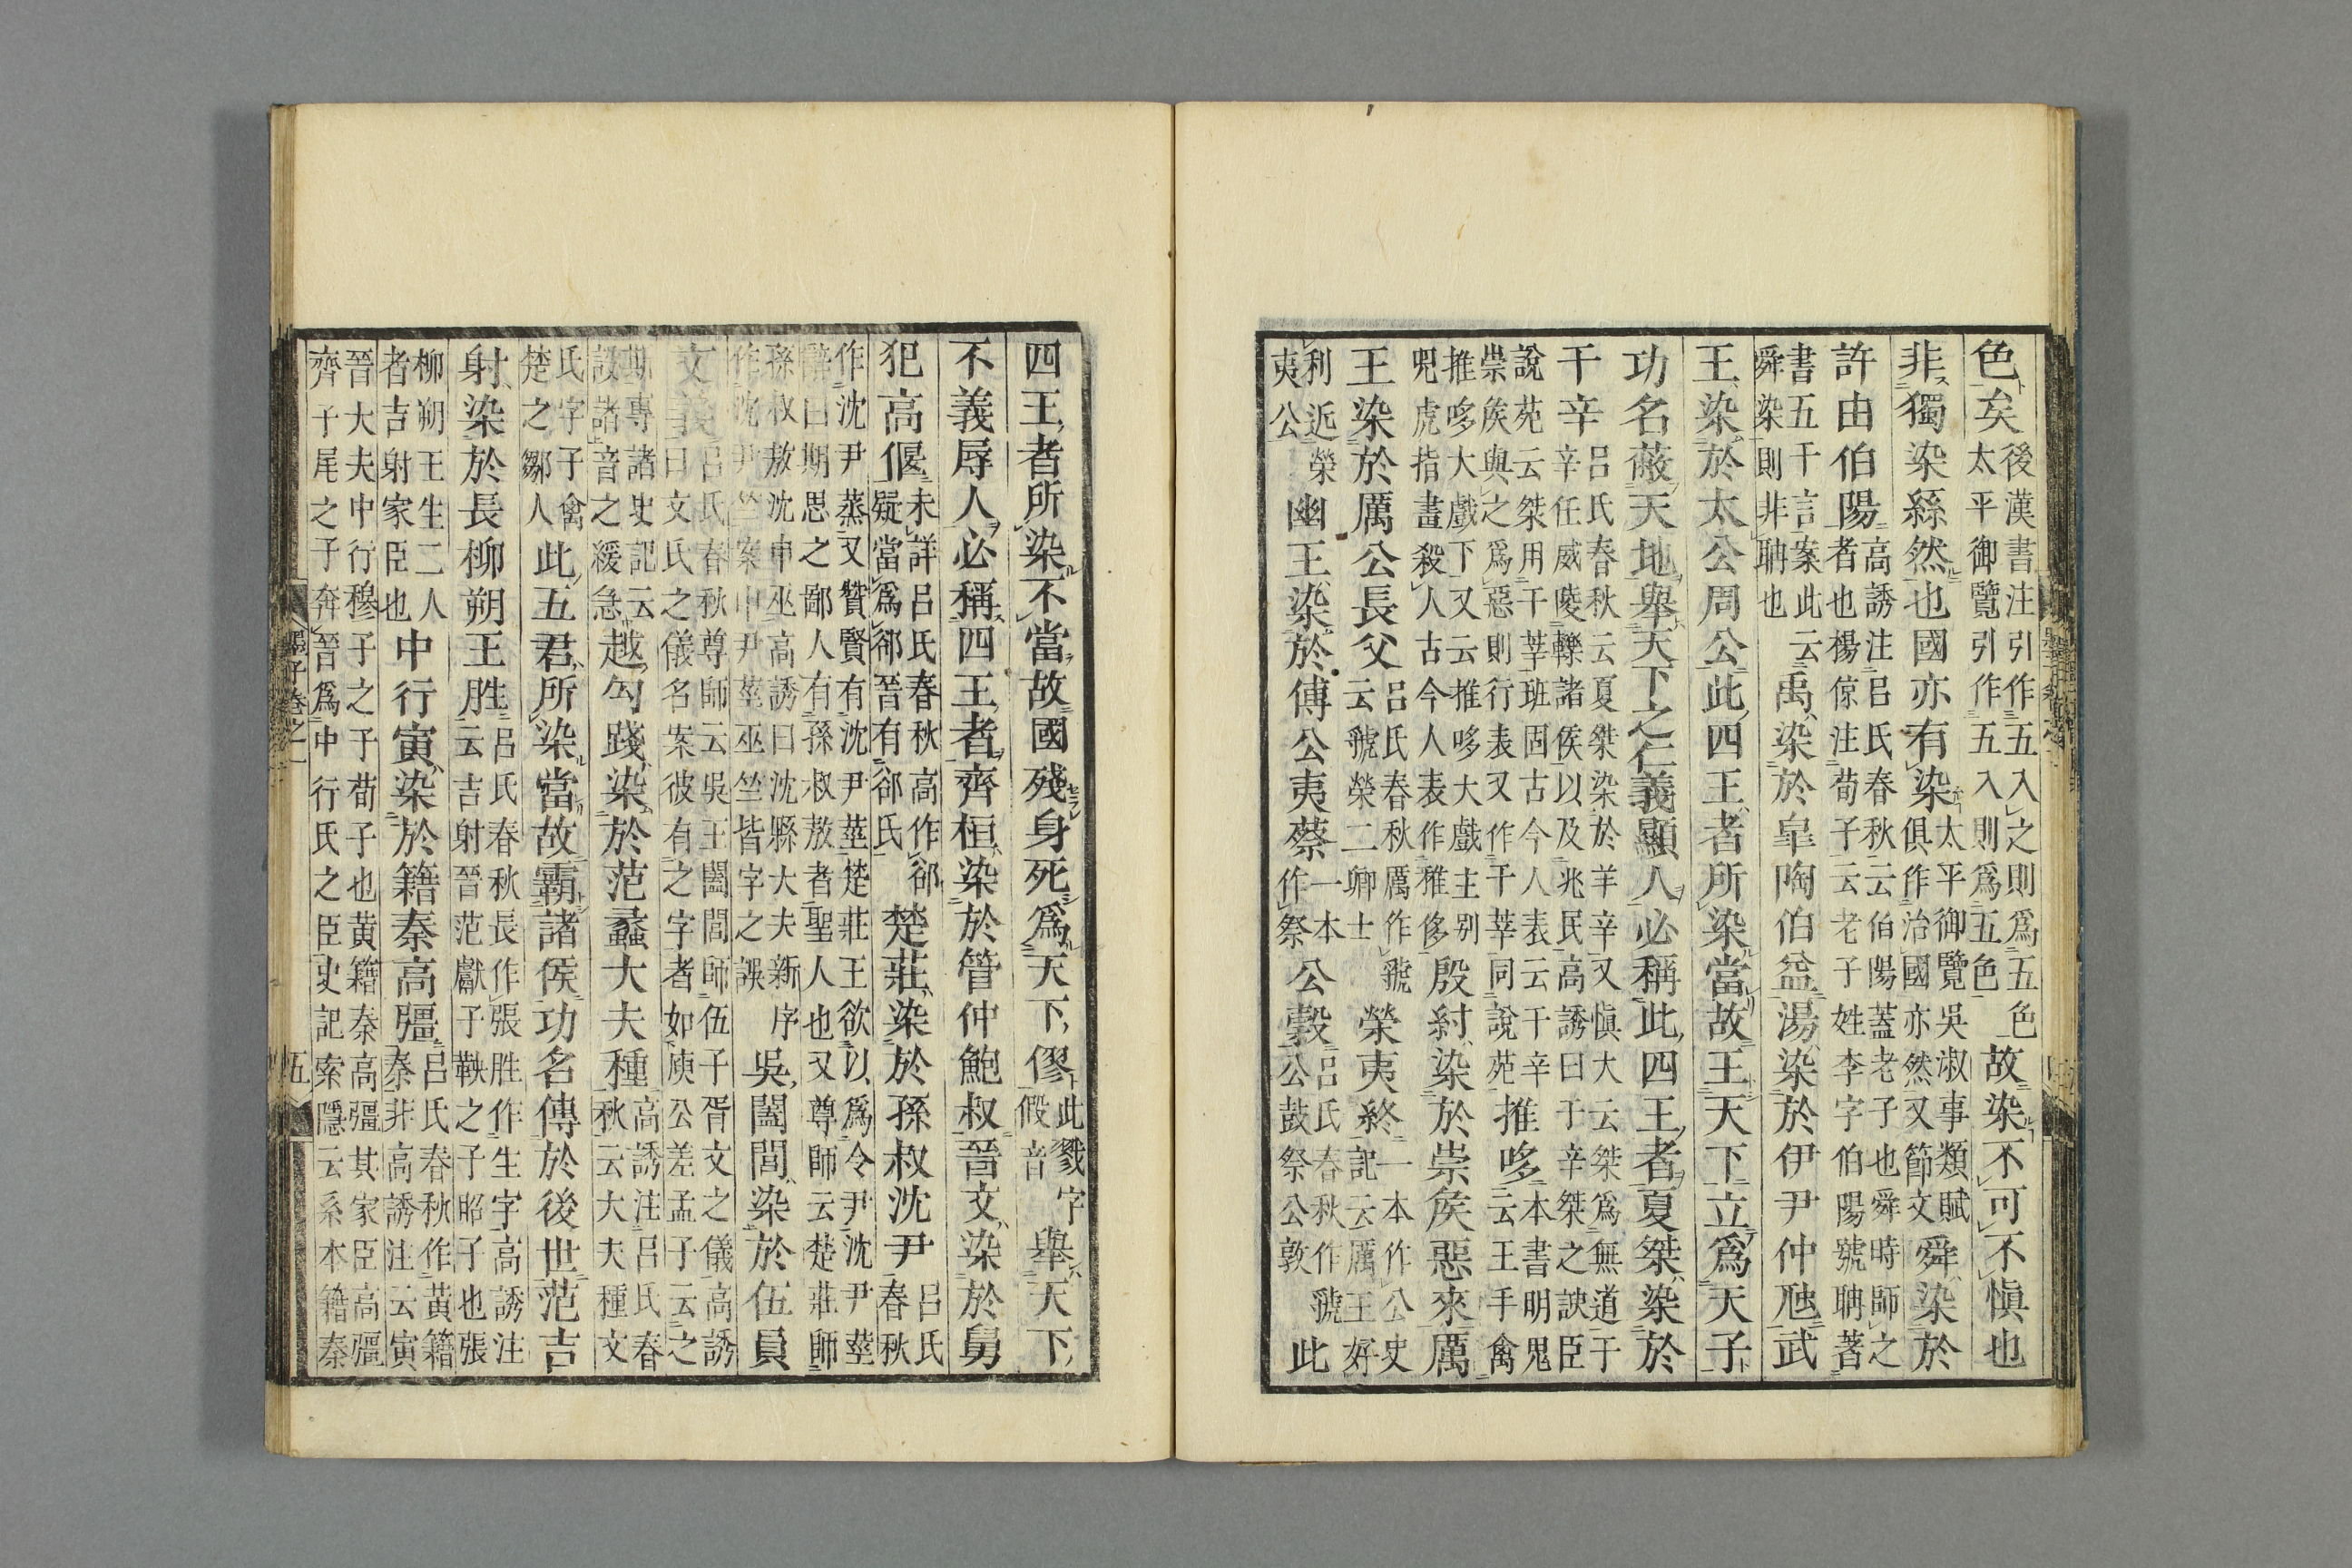 色矣後漢書注引作五入之則爲五色太平御覽引作五入則爲五色故染不可不愼也
非獨染絲然也國亦有染太平御覽吳淑事類賦俱作治國亦然又節文舜染於
許由伯陽高誘注呂氏春秋云伯陽蓋老子也舜時師之者也楊倞注荀子云老子姓李字伯陽號聃著
書五千言案此云舜染則非聃也禹染於皐陶伯益湯染於伊尹仲虺武
王染於太公周公此四王者所染當故王天下立爲天子
功名蔽天地舉天下之仁義顯人必稱此四王者夏桀染於
干辛呂氏春秋云夏桀染於羊辛又愼大云桀爲無道干辛任威陵轢諸侯以及兆民高誘曰干辛桀之諛臣
說苑云桀用干莘班固古今人表云干辛崇侯與之爲惡則行表又作干莘同說苑推哆本書明鬼云王手禽
推哆大戲下又云推哆大戲主别兕虎指畫殺人古今人表作雅侈殷紂染於崇侯惡來厲
王染於厲公長父呂氏春秋厲作虢云虢榮二卿士榮夷終一本作公史記云厲王好
利近榮夷公幽王染於傅公夷蔡一本作祭公穀呂氏春秋作虢公鼓祭公敦此
四王者所染不當故國殘身死爲天下僇此戮字假音舉天下
不義辱人必稱四王者齊桓染於管仲鮑叔晉文染於舅
犯高偃未詳呂氏春秋高作郤疑當爲郤晉有郤氏楚莊染於孫叔沈尹呂氏春秋
作沈尹蒸又贊賢有沈尹莖楚莊王欲以爲令尹沈尹莖辭曰期思之鄙人有孫叔敖者聖人也又尊師云楚莊師
孫叔敖沈申巫高誘曰沈縣大夫新序作沈尹竺案申尹莖巫竺皆字之誤吳闔閭染於伍員
文義呂氏春秋尊師云吳王闔閭師伍子胥文之儀高誘曰文氏之儀名案彼有之字者如庾公差孟子云之
斯專諸史記云設諸音之緩急越勾踐染於范蠡大夫種高誘注呂氏春秋云大夫種文
氏字子禽楚之鄒人此五君所染當故霸諸侯功名傳於後世范吉
射染於長柳朔王胜呂氏春秋長作張胜作生字高誘注云吉射晉范獻子鞅之子昭子也張
柳朔王生二人者吉射家臣也中行寅染於籍秦高彊呂氏春秋作黃籍秦非高誘注云寅
晉大夫中行穆子之子荀子也黃籍秦高彊其家臣高彊齊子尾之子奔晉爲中行氏之臣史記索隱云系本籍秦
墨子卷之一
五